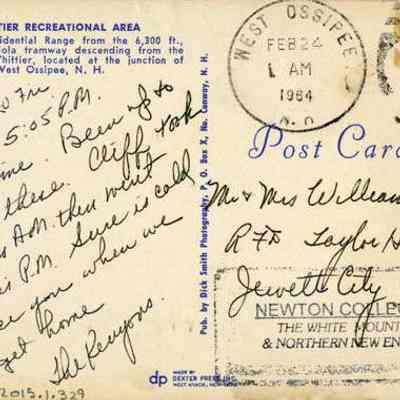 TIER RECREATIONAL AREA
idential Range from the 6,300 ft.,
ola tramway descending from the
hittier, located at the junction of
West Ossipee, N. H.
5:05 P.M.
ine. Been up to
these. Cliff took
A.M. then went
P.M. Sure is cold
see you when we
get home
The Kenyons.
2015.1.329
Pub. by Dick Smith Photography, P. O. Box X, No. Conway, N. H.
MADE BY
dp DEXTER PRESS, INC.
WEST NYACK, NEW YORK
WEST OSSIPEE
FEB 24
AM
1964
Post Card
Mr & Mrs William
RFD Taylor H
Jewett City
NEWTON COLLE
THE WHITE MOUNT
& NORTHERN NEW EN